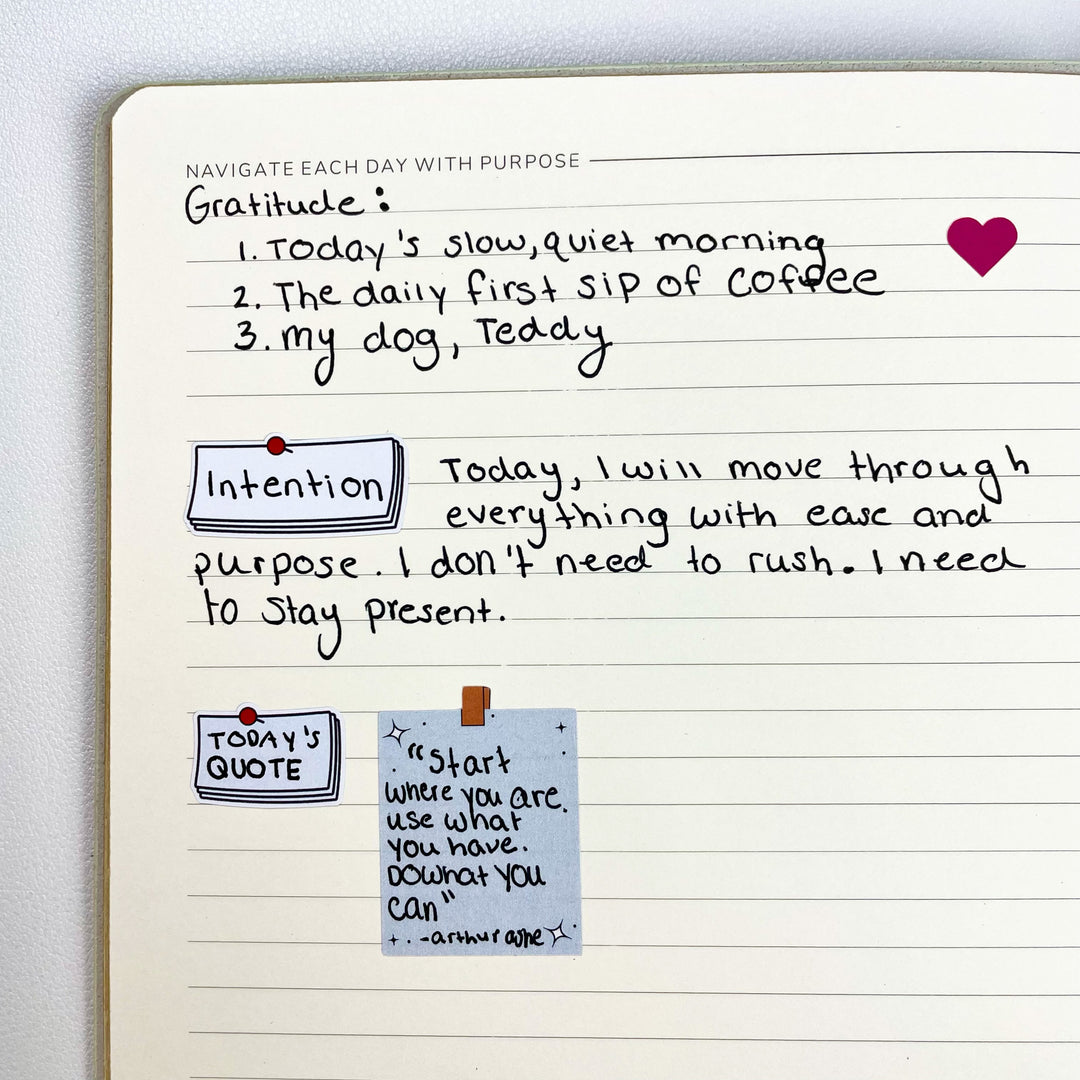 NAVIGATE EACH DAY WITH PURPOSE
Gratitude:
1. Today's slow, quiet morning
2. The daily first sip of coffee
3. my dog, Teddy
Intention
Today, I will move through
everything with ease and
purpose. I don't need to rush. I need
to stay present.
TODAY'S
QUOTE
"Start
where you are.
use what
you have.
Do what you
can"
-arthur ashe